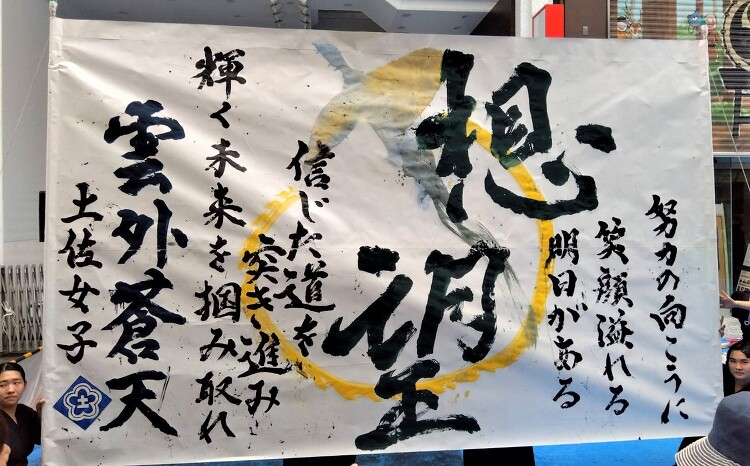 努力の向こうに
笑顔溢れる
明日がある
想望
信じた道を
突き進み
輝く未来を掴み取れ
雲外蒼天
土佐女子
土